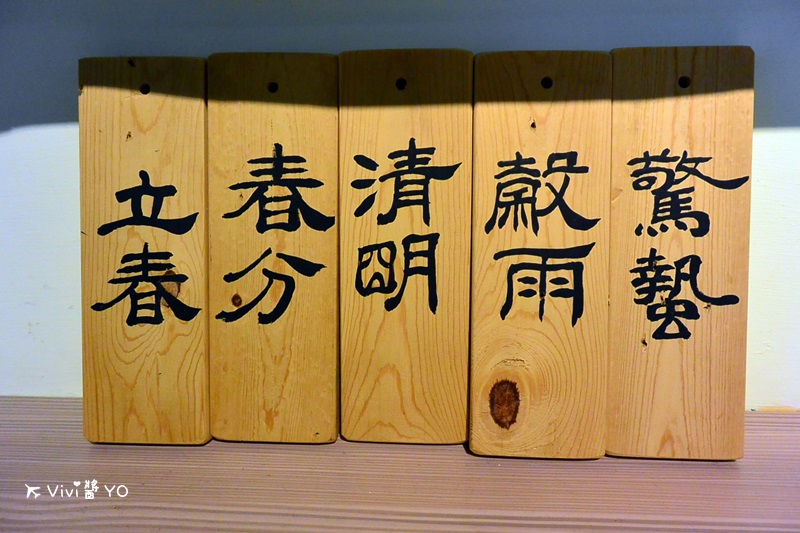 立春
春分
清明
穀雨
驚蟄
Vivi醬YO